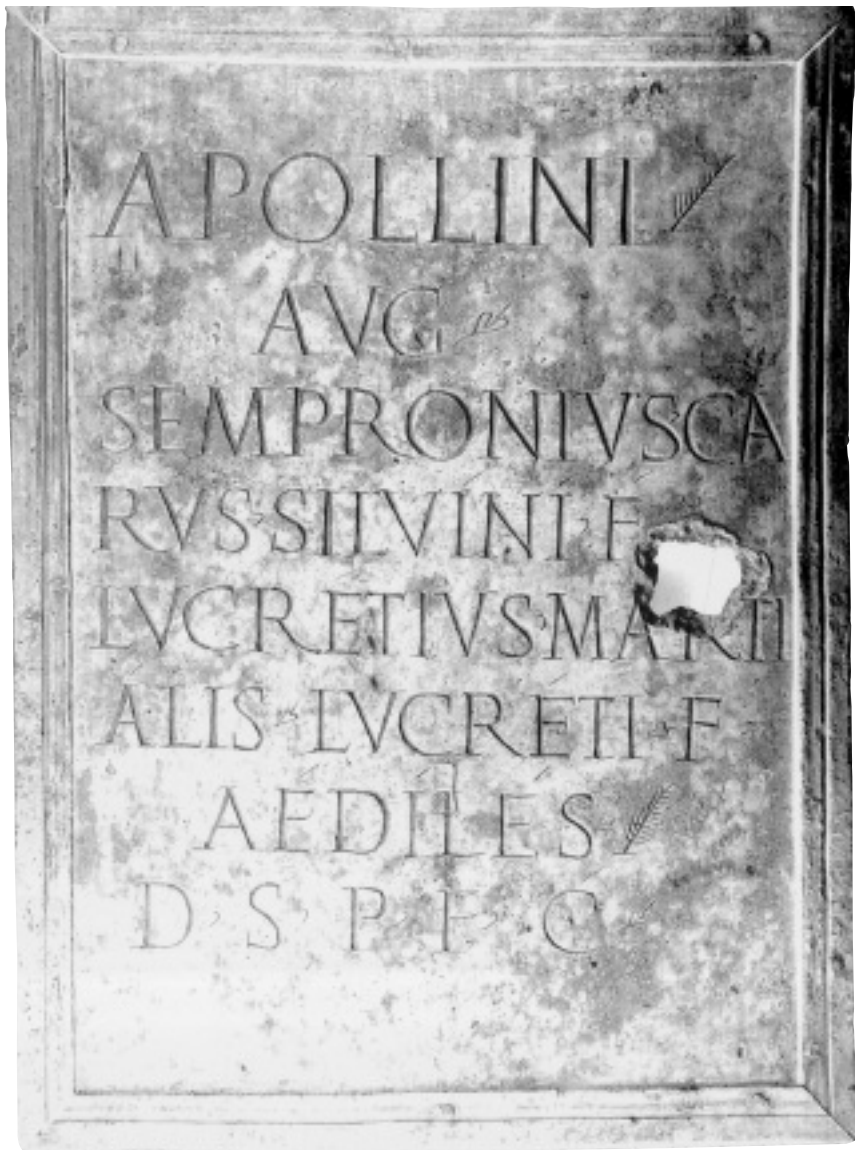 APOLLINI
AVG
SEMPRONIVS CA
RVS SILVINI F
LVCRETIVS MARTI
ALIS LVCRETI F
AEDILES
D S P F C